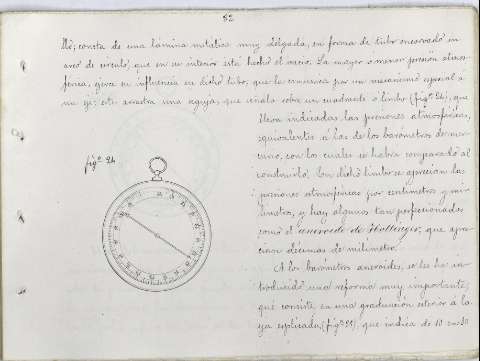 52
llé; consta de una lámina metálica muy delgada, en forma de tubo encorvado en
arco de círculo, que en su interior está hecho el vacío. La mayor ó menor presión atmos-
férica, ejerce su influencia en dicho tubo, que la comunica por un mecanismo especial á
un eje: este arrastra una aguja, que señala sobre un cuadrante ó limbo (figª 24), que
lleva indicadas las presiones atmosféricas,
equivalentes á las de los barómetros de mer-
curio, con los cuales se habrá comparado al
construirlo. En dicho limbo se aprecian las
presiones atmosféricas por centímetros y mi-
límetros, y hay algunos tan perfeccionados
como el aneroide de Hottinger, que apre-
cian décimas de milímetro.
figª 24
A los barómetros aneroides, se les ha in-
troducido una reforma muy importante,
que consiste en una graduación exterior á la
ya explicada, (figª 25), que indica de 10 en 10